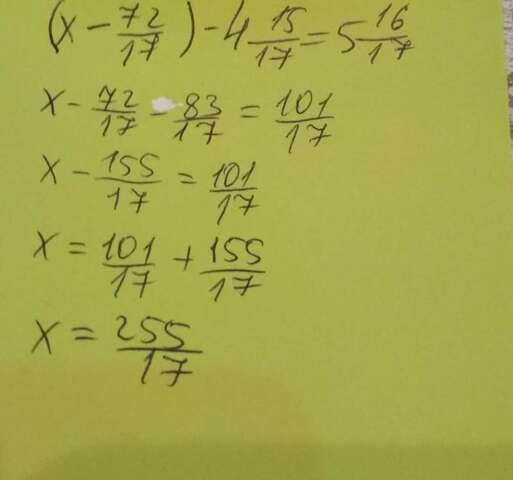 (x - 72/17) - 4 15/17 = 5 16/17
x - 72/17 - 83/17 = 101/17
x - 155/17 = 101/17
x = 101/17 + 155/17
x = 255/17